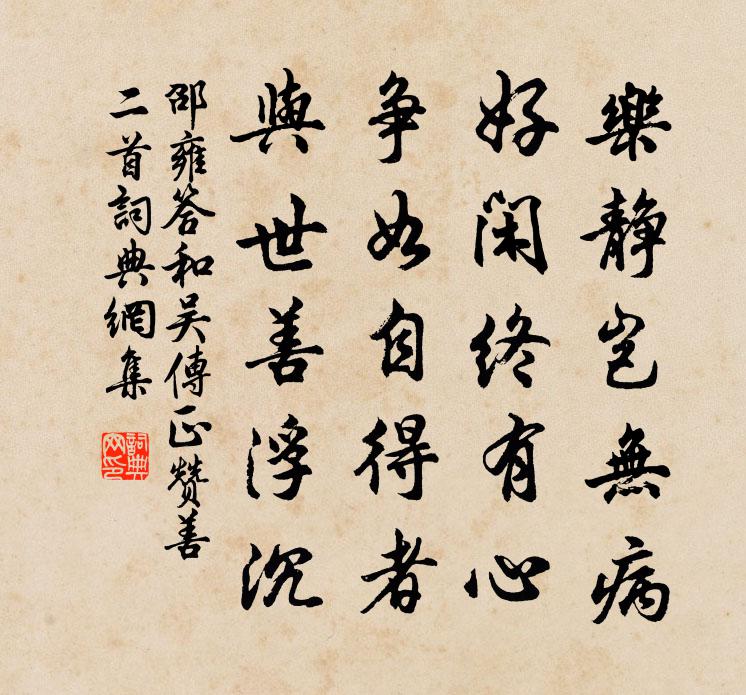 樂靜豈無病
好閑終有心
争如自得者
與世善浮沉
邵雍答和吴傳正贊善
二首詞典網集
詞典網印